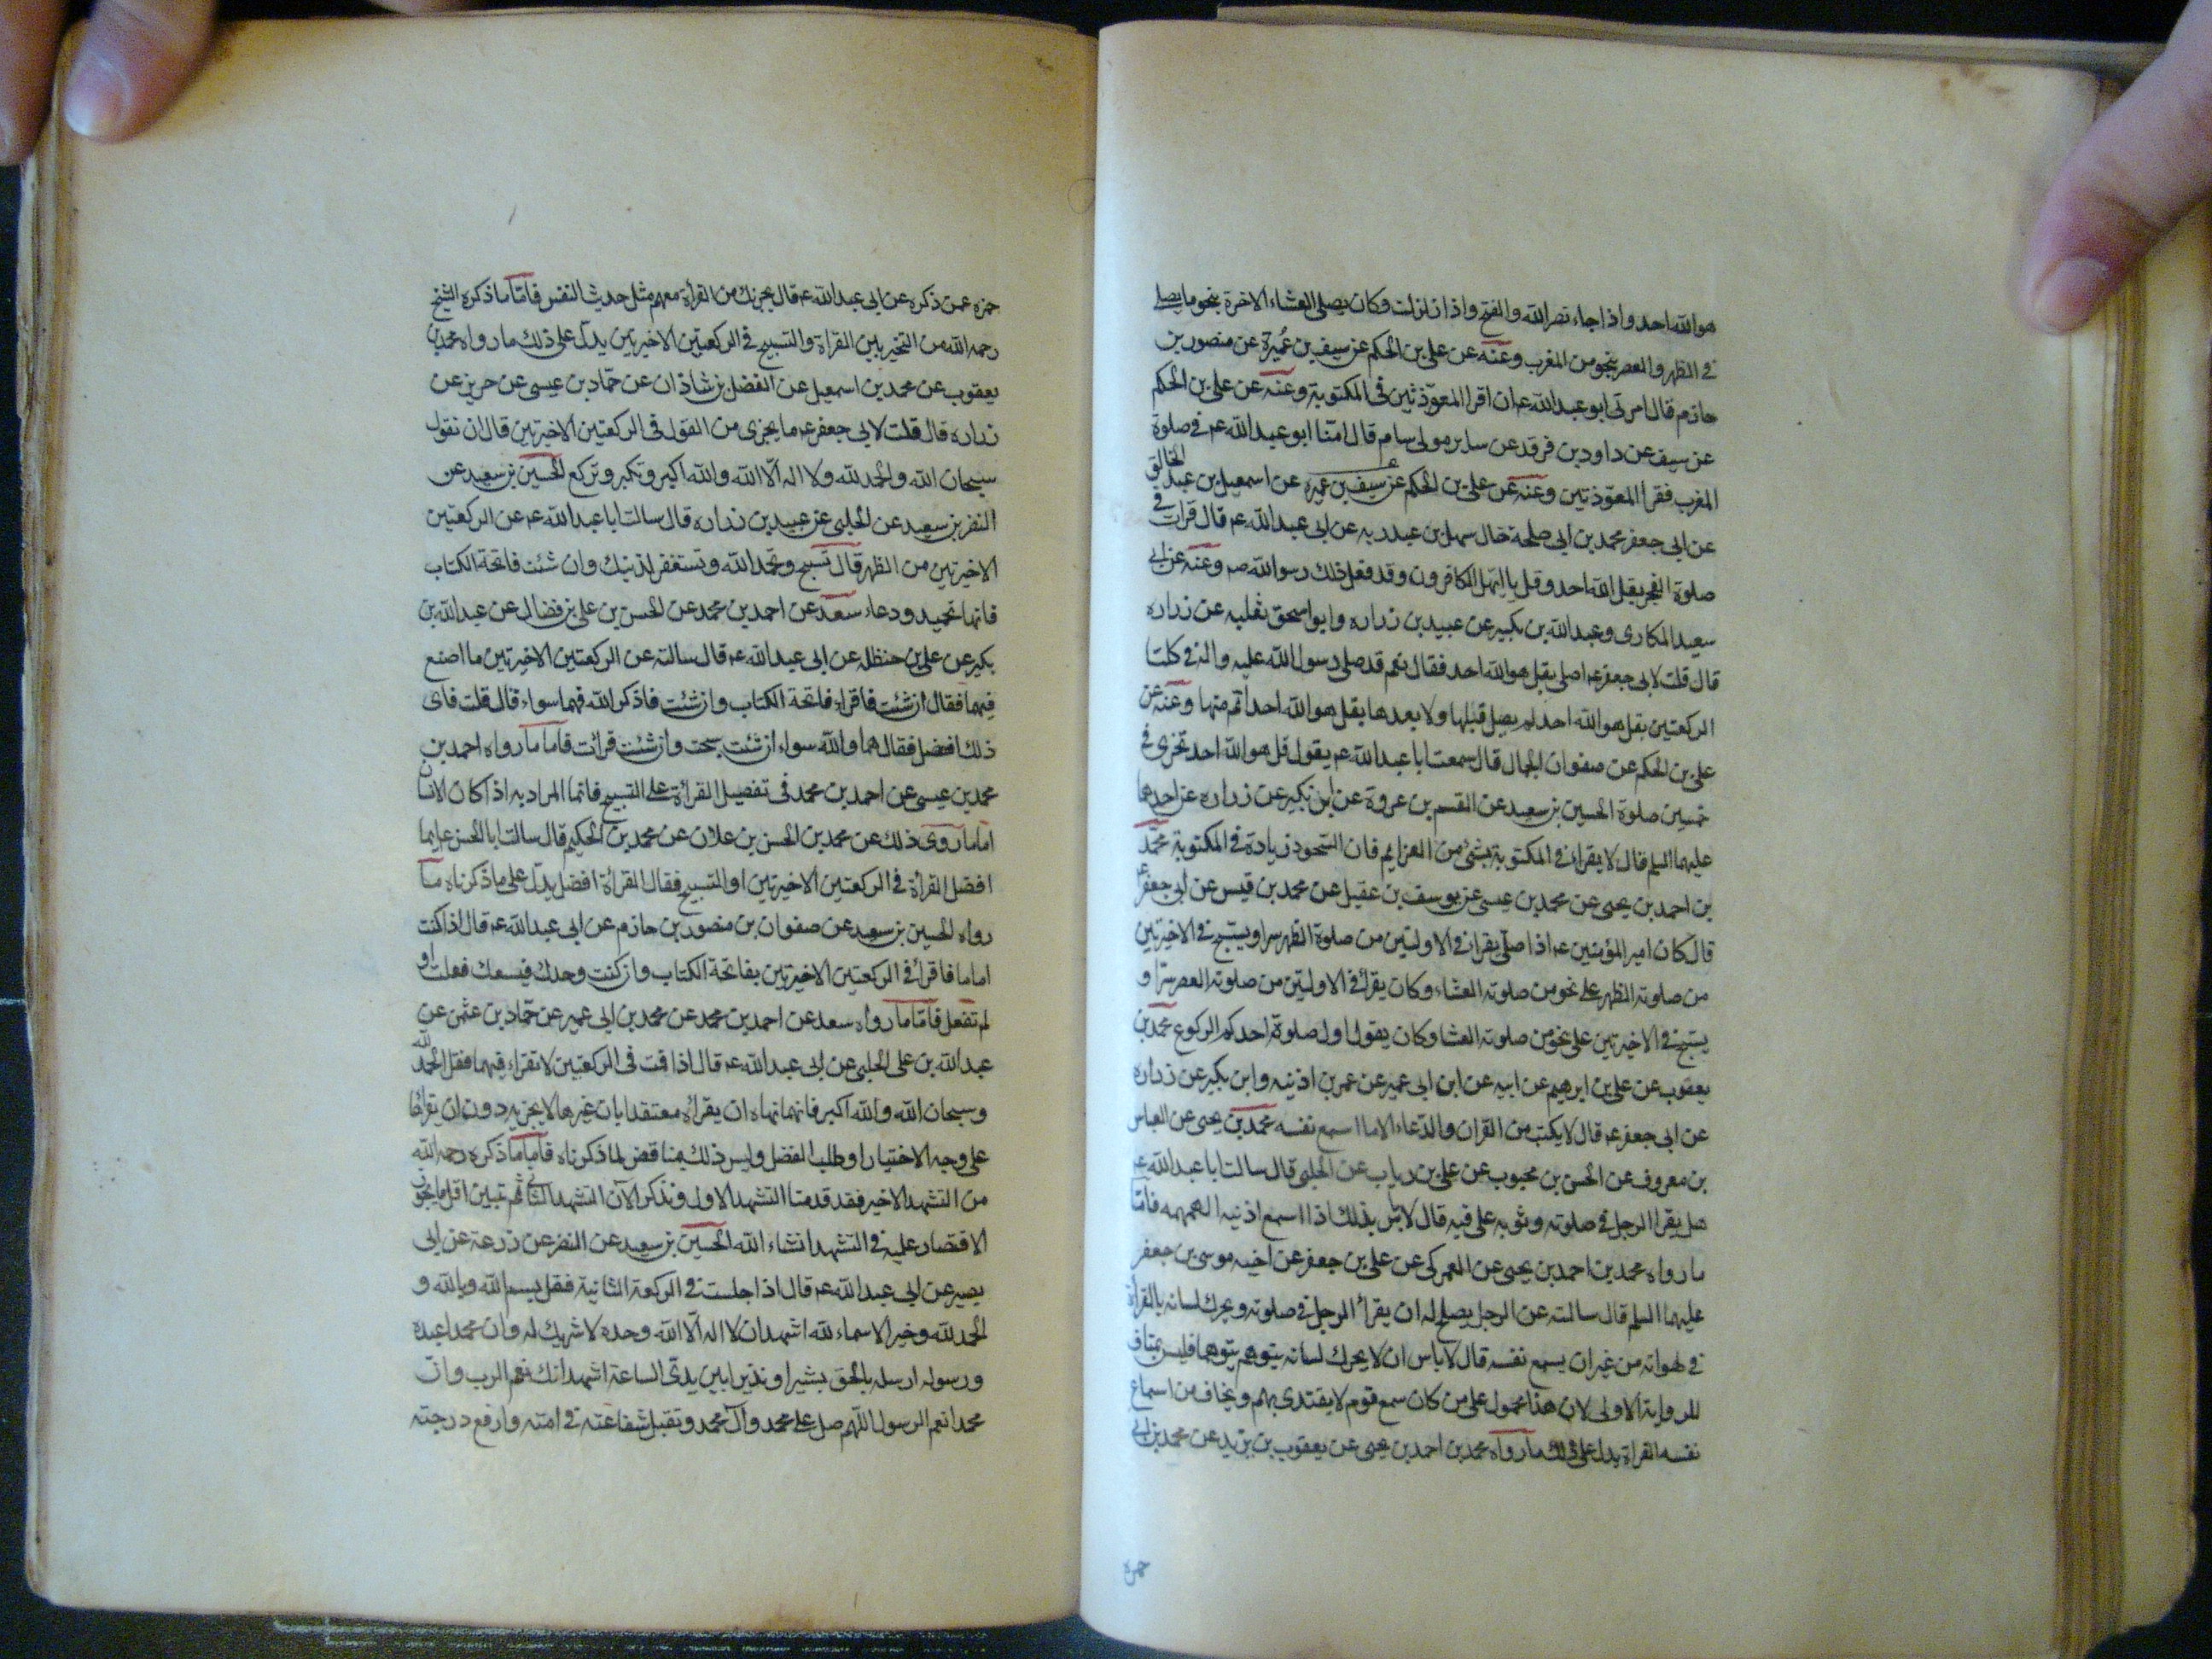 هو الله احد و اذا جاء نصر الله والفتح واذا زلزلت وكان يصلى العشاء الاخرة بنحو ما يصلى
فى الظهر والعصر بنحو من المغرب وعنه عن على بن الحكم عن سيف بن عميرة عن منصور بن
حازم قال امرنى ابو عبد الله ع ان اقرا المعوذتين فى المكتوبة وعنه عن على بن الحكم
عن سيف عن داود بن فرقد عن صابر مولى بسام قال امنا ابو عبد الله ع فى صلوة
المغرب فقرا المعوذتين وعنه عن على بن الحكم عن سيف بن عميره عن اسمعيل بن عبد الخالق
عن ابى جعفر محمد بن ابى طلحة خال سهل بن عبد ربه عن ابى عبد الله ع قال قرات فى
صلوة الفجر بقل هو الله احد وقل يا ايها الكافرون وقد فعل ذلك رسول الله ص وعنه عن ابى
سعيد المكارى وعبد الله بن بكير عن عبيد بن زراره وابو اسحق ثعلبه عن زراره
قال قلت لابى جعفر ع اصلى بقل هو الله احد فقال نعم قد صلى رسول الله عليه واله فى كلتا
الركعتين بقل هو الله احد لم يصل قبلها ولا بعدها بقل هو الله احد اتم منها وعنه عن
على بن الحكم عن صفوان الجمال قال سمعت ابا عبد الله ع يقول قل هو الله احد تجزى فى
خمسين صلوة الحسين بن سعيد عن القسم بن عروة عن ابن بكير عن زراره عن احدهما
عليهما السلم قال لا يقراء فى المكتوبة بشئ من العزايم فان السجود زيادة فى المكتوبة محمد
بن احمد بن يحيى عن محمد بن عيسى عن يوسف بن عقيل عن محمد بن قيس عن ابى جعفر ع
قال كان امير المؤمنين ع اذا صلى يقرا فى الاولتين من صلوة الظهر سرا ويسبح فى الاخيرتين
من صلوته الظهر على نحو من صلوته العشاء وكان يقرأ فى الاولتين من صلوته العصر سرا و
يسبح فى الاخيرتين على نحو من صلوته العشا وكان يقول اول صلوة احدكم الركوع محمد بن
يعقوب عن على بن ابرهيم عن ابيه عن ابن ابى عمير عن عمر بن اذينه وابن بكير عن زراره
عن ابى جعفر ع قال لا يكتب من القران والدعاء الا ما اسمع نفسه محمد بن يحيى عن العباس
بن معروف عن الحسن بن محبوب عن على بن رياب عن الحلبى قال سالت ابا عبد الله ع
هل يقرا الرجل فى صلوته وثوبه على فيه قال لا باس بذلك اذا اسمع اذنيه الهمهمه فاما
ما رواه محمد بن احمد بن يحيى عن العمركى عن على بن جعفر عن اخيه موسى بن جعفر
عليهما السلم قال سالته عن الرجل يصلح له ان يقرأ الرجل فى صلوته ويحرك لسانه بالقراة
فى لهواته من غير ان يسمع نفسه قال لا باس ان لا يحرك لسانه يتوهم يتوهما فليس بمناف
للرواية الاولى لان هذا محمول على من كان سمع قوم لا يقتدى بهم ويخاف من اسماع
نفسه القراة يدل على ذلك ما رواه محمد بن احمد بن يحيى عن يعقوب بن يزيد عن محمد بن ابى
حمزه
حمزه عمن ذكره عن ابى عبد الله ع قال يجزيك من القرأة معهم مثل حديث النفس فاما ما ذكره الشيخ
رحمه الله من التخير بين القراة والتسبيح فى الركعتين الاخيرتين يدل على ذلك ما رواه محمد بن
يعقوب عن محمد بن اسمعيل عن الفضل بن شاذان عن حماد بن عيسى عن حريز عن
زراره قال قلت لابى جعفر ع ما يجزى من القول فى الركعتين الاخيرتين قال ان تقول
سبحان الله والحمد لله ولا اله الا الله والله اكبر وتكبر وتركع الحسين بن سعيد عن
النضر بن سعيد عن الحلبى عن عبيد بن زراره قال سالت ابا عبد الله ع عن الركعتين
الاخيرتين من الظهر قال تسبح وتحمد الله وتستغفر لذنبك وان شئت فاتحة الكتاب
فانها تحميد ودعاء سعد عن احمد بن محمد عن الحسن بن على بن فضال عن عبد الله بن
بكير عن على بن حنظله عن ابى عبد الله ع قال سالته عن الركعتين الاخيرتين ما اصنع
فيهما فقال ان شئت فاقراء فاتحة الكتاب وان شئت فاذكر الله فهما سواء قال قلت فاى
ذلك افضل فقال هما والله سواء ان شئت سبحت وان شئت قرات فاما ما رواه احمد بن
محمد بن عيسى عن احمد بن محمد فى تفضيل القرأة على التسبيح فانما المراد به اذا كان الانسان
اماما روى ذلك عن محمد بن الحسن بن علان عن محمد بن الحكيم قال سالت ابا الحسن ع ايما
افضل القرأة فى الركعتين الاخيرتين او التسبيح فقال القرأة افضل يدل على ما ذكرناه ما
رواه الحسين بن سعيد عن صفوان بن منصور بن حازم عن ابى عبد الله ع قال اذا كنت
اماما فاقرأ فى الركعتين الاخيرتين بفاتحة الكتاب وان كنت وحدك فيسعك فعلت او
لم تفعل فاما ما رواه سعد عن احمد بن محمد عن محمد بن ابى عمير عن حماد بن عثمن عن
عبد الله بن على الحلبى عن ابى عبد الله ع قال اذا قمت فى الركعتين لا تقراء فيهما فقل الحمد لله
وسبحان الله والله اكبر فانما نهاه ان يقرأه معتقدا بان غيرها لا يجزيه دون ان يقرأها
على وجه الاختيار او طلب الفضل وليس ذلك يناقض لما ذكرناه فاما ما ذكره رحمه الله
من التشهد الاخير فقد قدمنا التشهد الاول ونذكر الآن التشهد الثانى ثم نبين اقل ما يجوز
الاقتصار عليه فى التشهد انشاء الله الحسين بن سعيد عن النضر عن زرعة عن ابى
بصير عن ابى عبد الله ع قال اذا جلست فى الركعة الثانية فقل بسم الله وبالله و
الحمد لله وخير الاسماء لله اشهد ان لا اله الا الله وحده لا شريك له وان محمدا عبده
ورسوله ارسله بالحق بشيرا ونذيرا بين يدى الساعة اشهد انك نعم الرب وان
محمدا نعم الرسول اللهم صل على محمد وآل محمد وتقبل شفاعته فى امته وارفع درجته